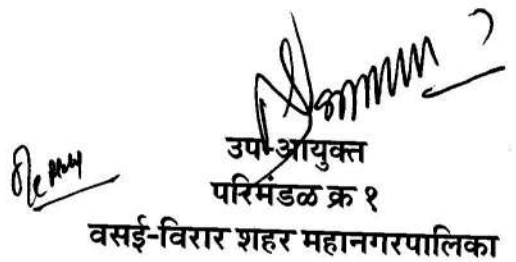 उप-आयुक्त
परिमंडळ क्र १
वसई-विरार शहर महानगरपालिका